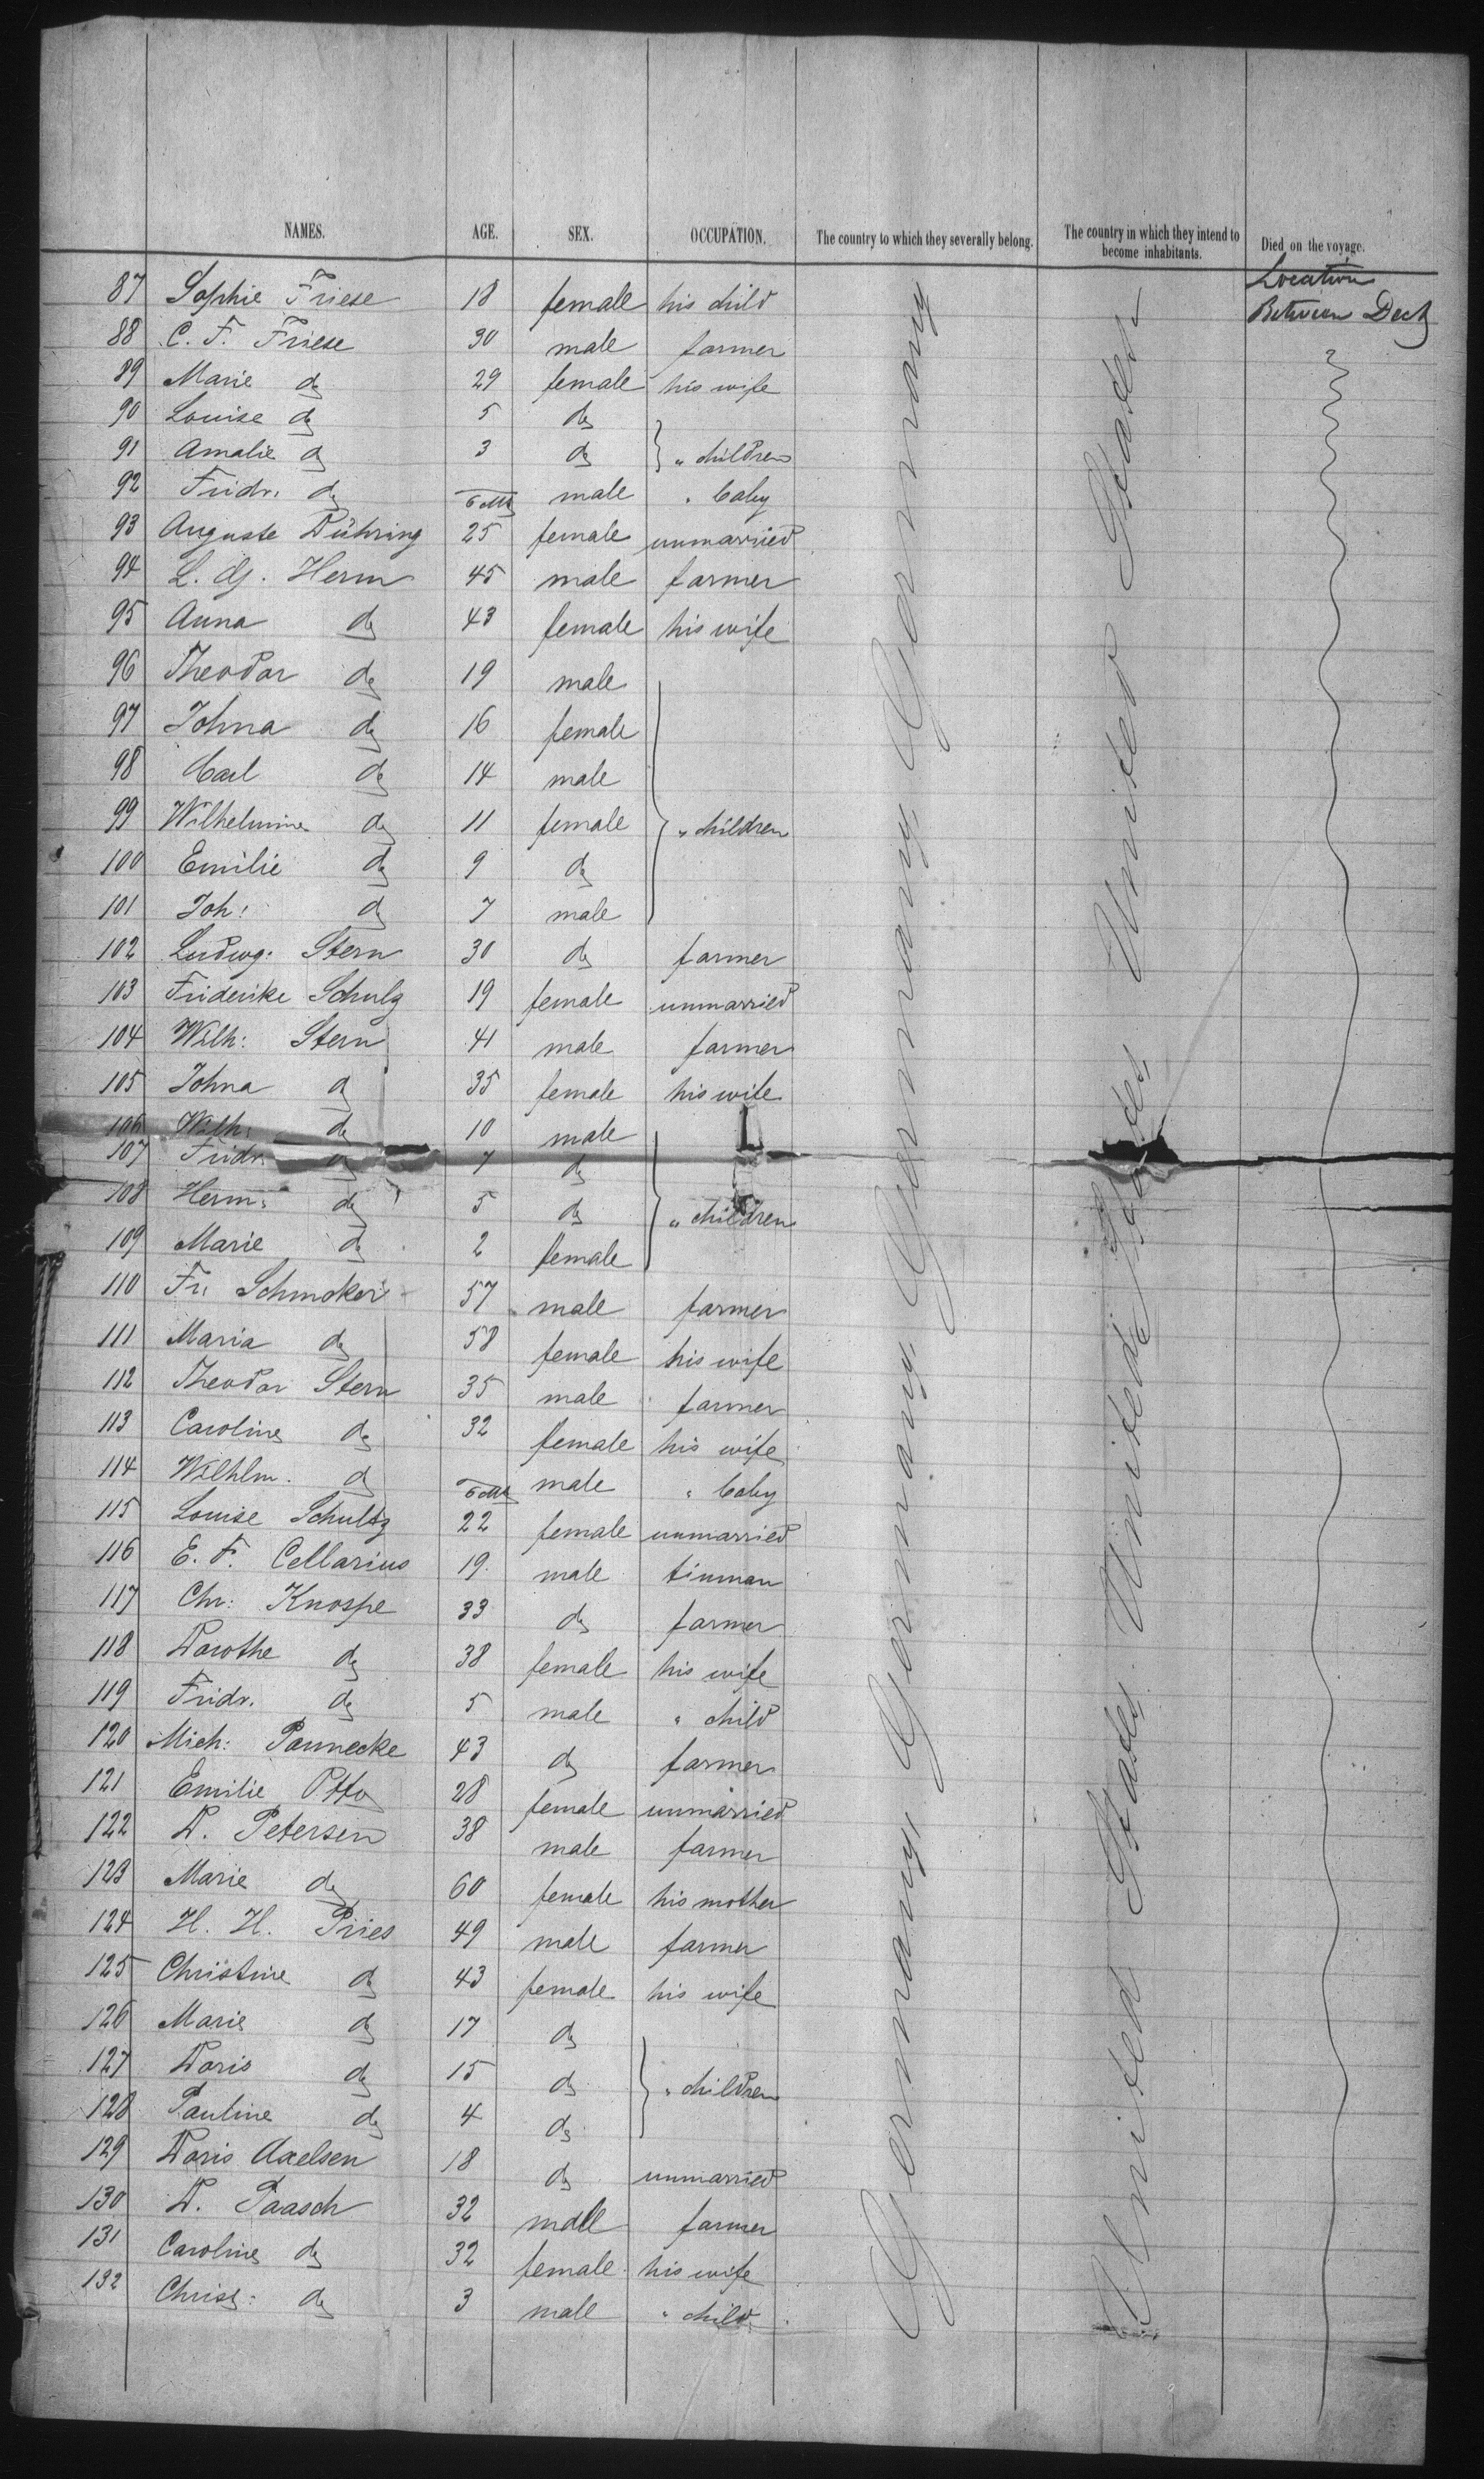 NAMES. AGE. SEX. OCCUPATION. The country to which they severally belong. The country in which they intend to become inhabitants. Died on the voyage.
Location
Between Deck
87 Sophie Friese 18 female his child
88 C. F. Friese 30 male farmer
89 Marie do 29 female his wife
90 Louise do 5 do
91 Amalie do 3 do " children
92 Fridr. do 6 Mt male " baby
93 Auguste Dühring 25 female unmarried
94 L. Herm 45 male farmer
95 Anna do 43 female his wife
96 Theodor do 19 male
97 Johna do 16 female
98 Carl do 14 male
99 Wilhelmine do 11 female " children
100 Emilie do 9 do
101 Joh: do 7 male
102 Ludwg: Stern 30 do farmer
103 Friderike Schulz 19 female unmarried
104 Wilh: Stern 41 male farmer
105 Johna do 35 female his wife
106 Wilh: do 10 male
107 Fridr. do 7 do
108 Herm: do 5 do " children
109 Marie do 2 female
110 Fr: Schmoker 57 male farmer
111 Maria do 58 female his wife
112 Theodor Stern 35 male farmer
113 Caroline do 32 female his wife
114 Wilhlm. do 6 Mt male " baby
115 Louise Schultz 22 female unmarried
116 E. F. Cellarius 19 male tinman
117 Chr: Knospe 33 do farmer
118 Dorothe do 38 female his wife
119 Fridr. do 5 male " child
120 Mich: Pannecke 43 do farmer
121 Emilie Otto 28 female unmarried
122 D. Petersen 38 male farmer
123 Marie do 60 female his mother
124 H. H. Pries 49 male farmer
125 Christine do 43 female his wife
126 Marie do 17 do
127 Doris do 15 do " children
128 Pauline do 4 do
129 Doris Axelsen 18 do unmarried
130 D. Paasch 32 male farmer
131 Caroline do 32 female his wife
132 Christ: do 3 male " child
Germany Germany Germany Germany Germany
United States United States United States